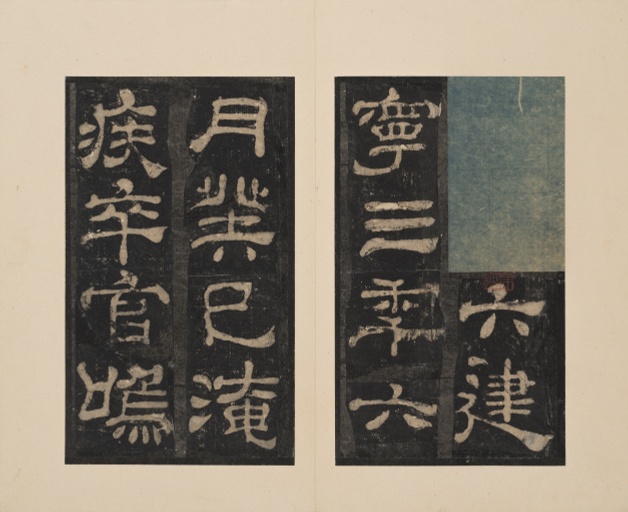 六建
寧三年六
月癸巳淹
疾卒官嗚